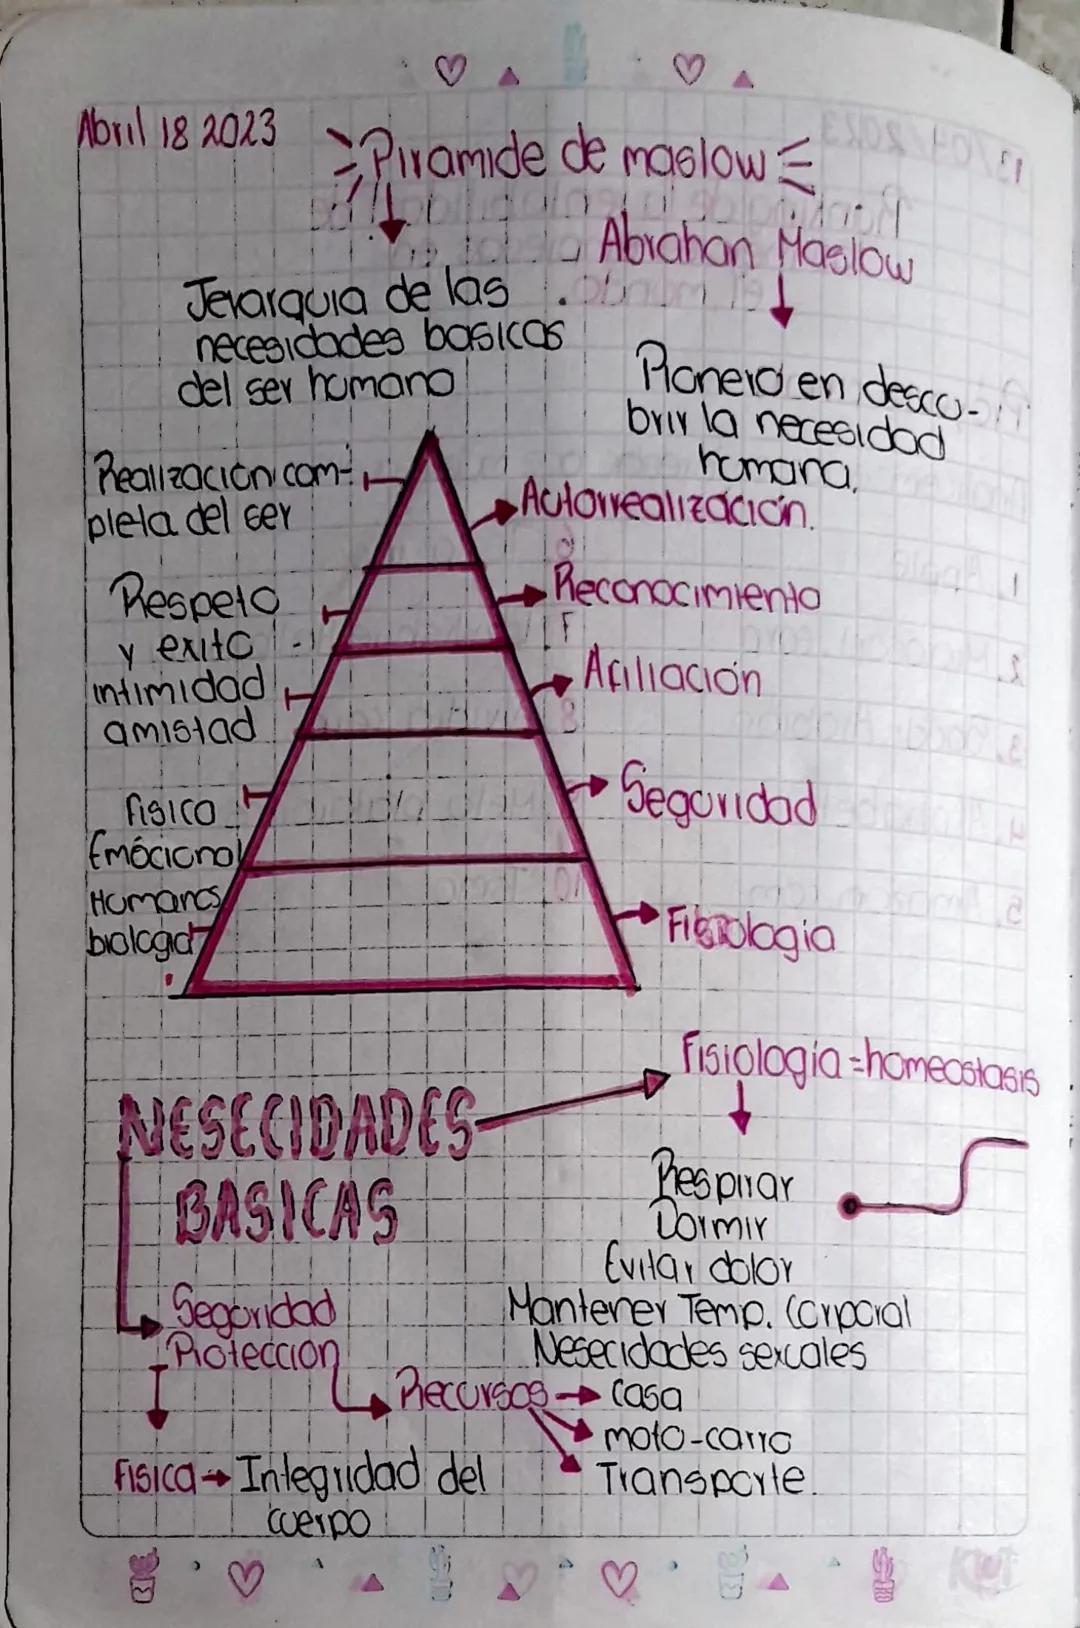 Abril 18 2023
Piramide de maslow
Abrahan Maslow
Jerarquia de las
necesidades basicas
del ser humano
Pionero en descu-
brir la necesidad
humana.
Realización com-
pleta del ser
Autorrealización.
Respeto
y exito
Reconocimiento
intimidad
amistad
Afiliación
fisico
Emocional
Seguridad
Humanos
biologia
Fisiologia
Fisiologia = homeostasis
NESECIDADES
BASICAS
Respirar
Dormir
Evitar dolor
Mantener Temp. Corporal
Nesecidades sexuales
Seguridad
Proteccion
Recursos
casa
moto-carro
Transporte.
Fisica → Integridad del
cuerpo